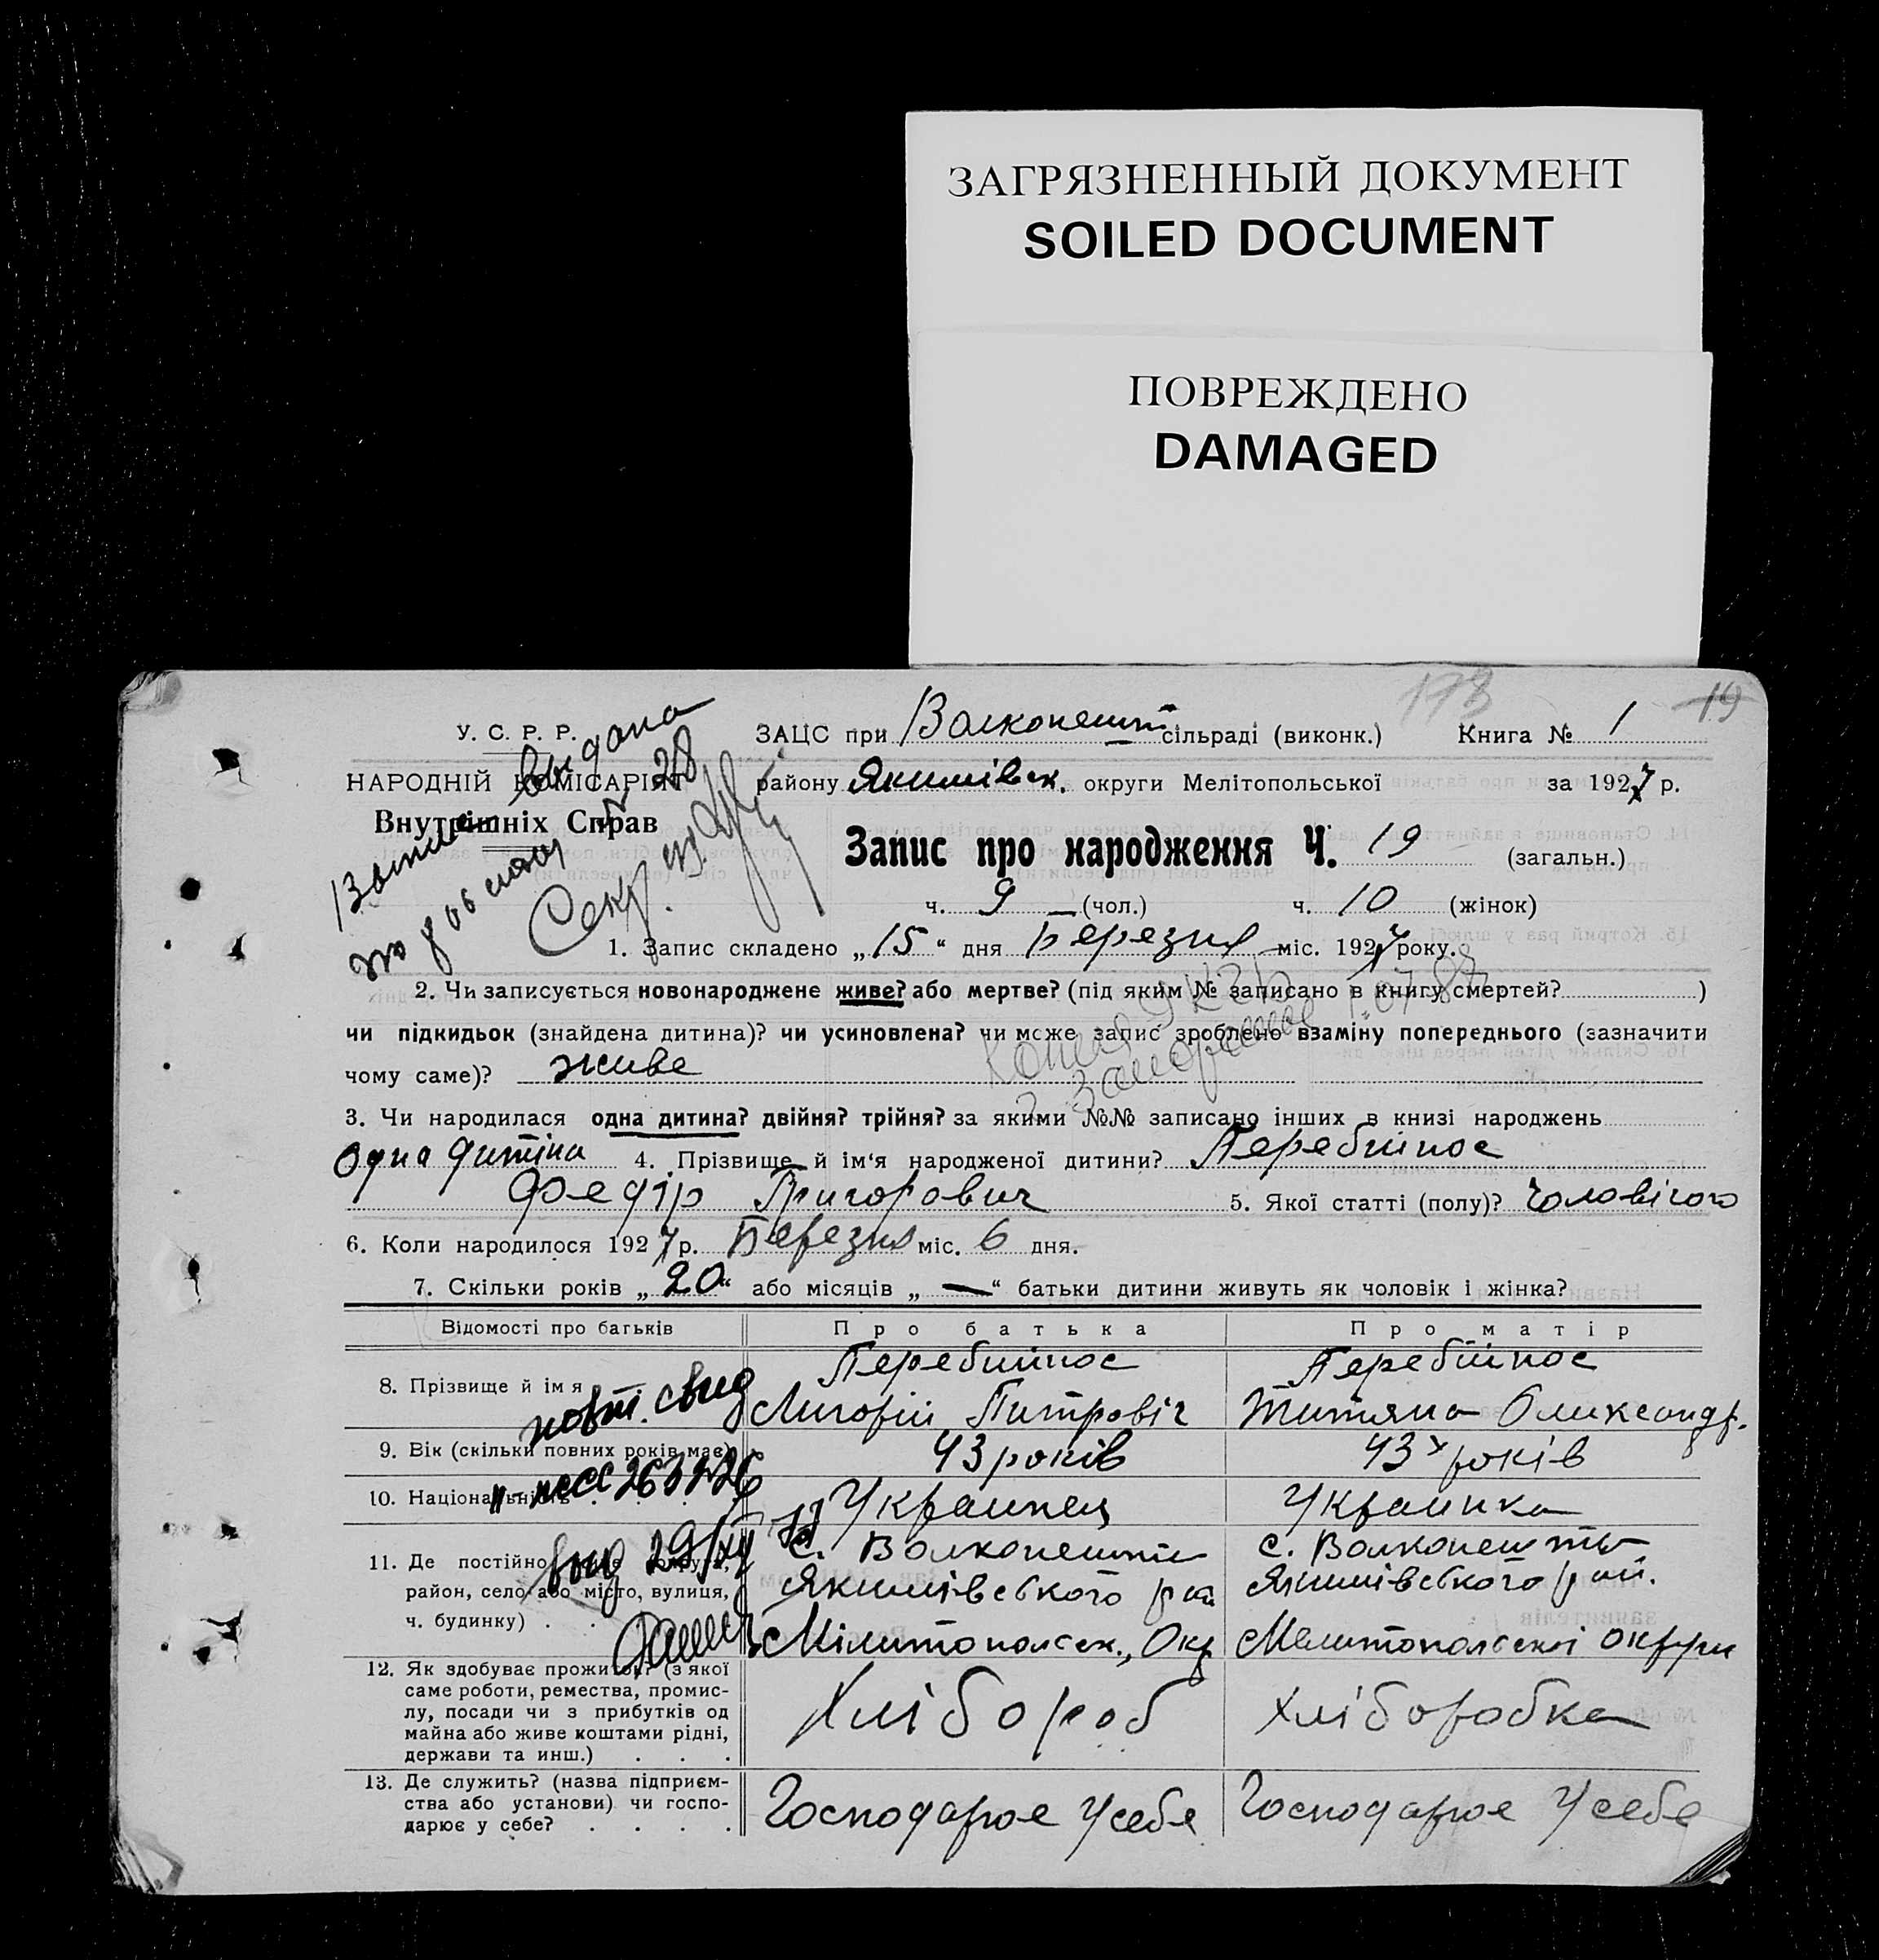 ЗАГРЯЗНЕННЫЙ ДОКУМЕНТ
SOILED DOCUMENT
ПОВРЕЖДЕНО
DAMAGED
178 19
У. С. Р. Р.
НАРОДНІЙ КОМІСАРІЯТ
Внутрішніх Справ
видана
28
Секр.
ЗАЦС при Волконешт сільраді (виконк.) Книга № 1
району Якимівск. округи Мелітопольської за 1927 р.
Запис про народження Ч. 19 (загальн.)
ч. 9 — (чол.) ч. 10 (жінок)
1. Запис складено „15“ дня березня міс. 1927 року.
2. Чи записується новонароджене живе? або мертве? (під яким № записано в книгу смертей? )
чи підкидьок (знайдена дитина)? чи усиновлена? чи може запис зроблено взаміну попереднього (зазначити
чому саме)? живе
3. Чи народилася одна дитина? двійня? трійня? за якими №№ записано інших в книзі народжень
Одна дитіна 4. Прізвище й ім‘я народженої дитини? Перебийнос
Федір Григорович 5. Якої статті (полу)? Чоловічого
6. Коли народилося 1927 р. Березня міс. 6 дня.
7. Скільки років „20“ або місяців „—“ батьки дитини живуть як чоловік і жінка?
Відомості про батьків Про батька Про матір
8. Прізвище й ім я Перебийнос Перебийнос
Лигорій Питровіч Титяна Олександр.
повт. свид
9. Вік (скільки повних років має) 43 років 43 років
10. Національність Украинец Украинка
11. Де постійно район, село або місто, вулиця, ч. будинку) с. Волконешти с. Волконешты
Якимівського рай Якимівського рай.
Мілитопольск., Окр Мелитопольскої округи
выд 29/XII
12. Як здобуває прожиток? (з якої
саме роботи, ремества, промис-
лу, посади чи з прибутків од
майна або живе коштами рідні,
держави та инш.) Хлібороб Хліборобка
13. Де служить? (назва підприєм-
ства або установи) чи госпо-
дарює у себе? Господарює у себе Господарює у себе